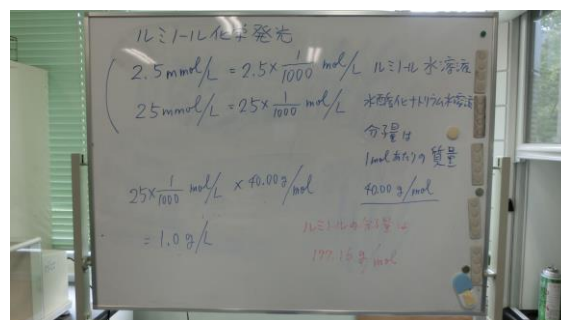 ルミノール化学発光
2.5mmol/L = 2.5×1/1000 mol/L ルミノール水溶液
25mmol/L = 25×1/1000 mol/L 水酸化ナトリウム水溶液
分子量は
1molあたりの質量
40.00g/mol
25×1/1000 mol/L × 40.00g/mol
= 1.0g/L
ルミノールの分子量は
177.16g/mol